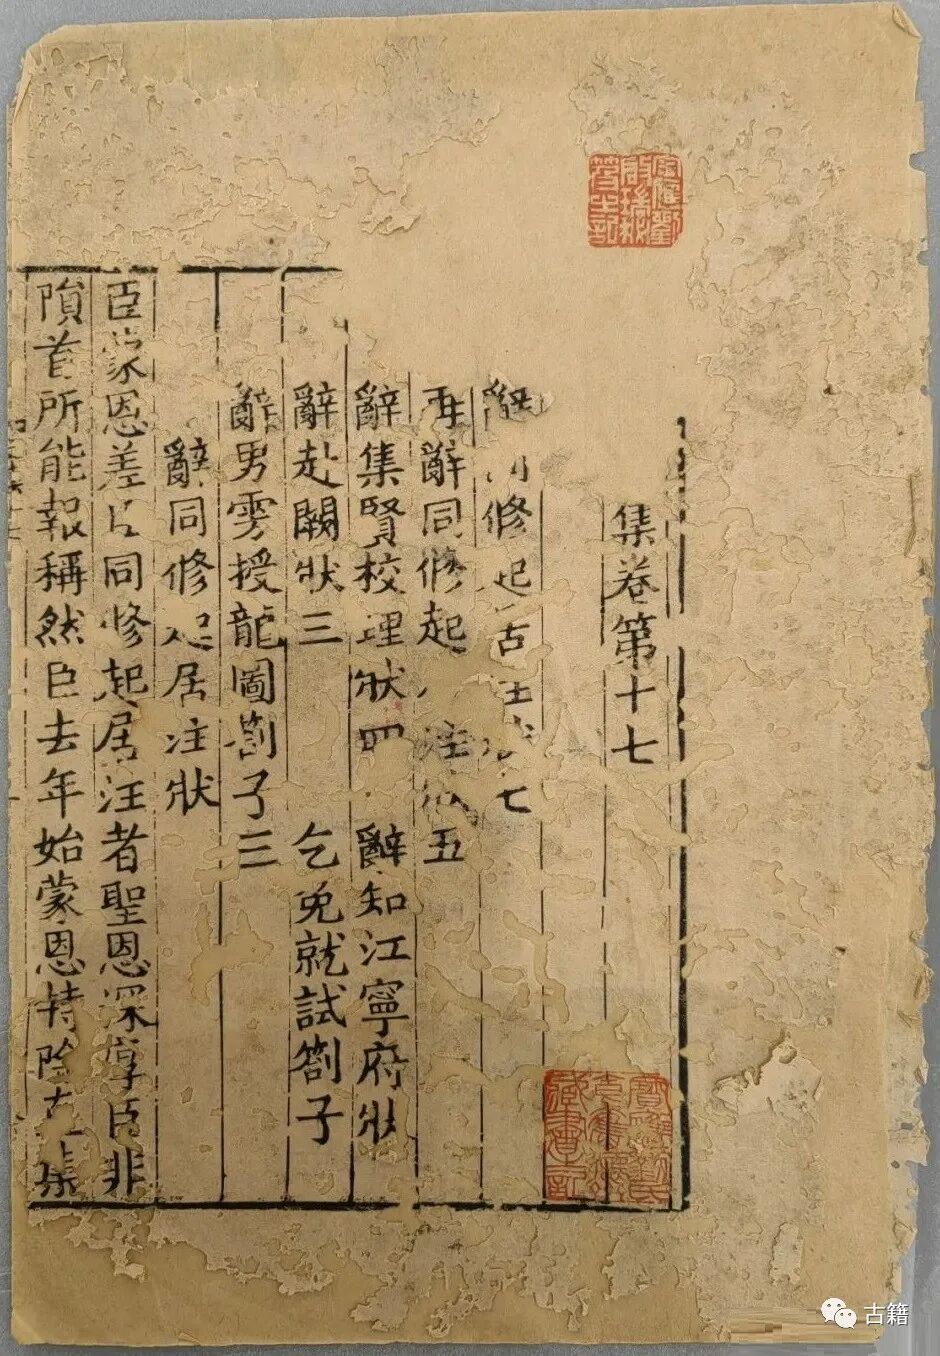 集卷第十七
修起居注狀七
再辭同修起注狀五
辭集賢校理狀四 辭知江寧府狀
辭赴闕狀三 乞免就試劄子
辭男雱授龍圖劄子三
辭同修起居注狀
臣蒙恩差臣同修起居注者聖恩深厚臣非
隕首所能報稱然臣去年始蒙恩特除直集
古籍